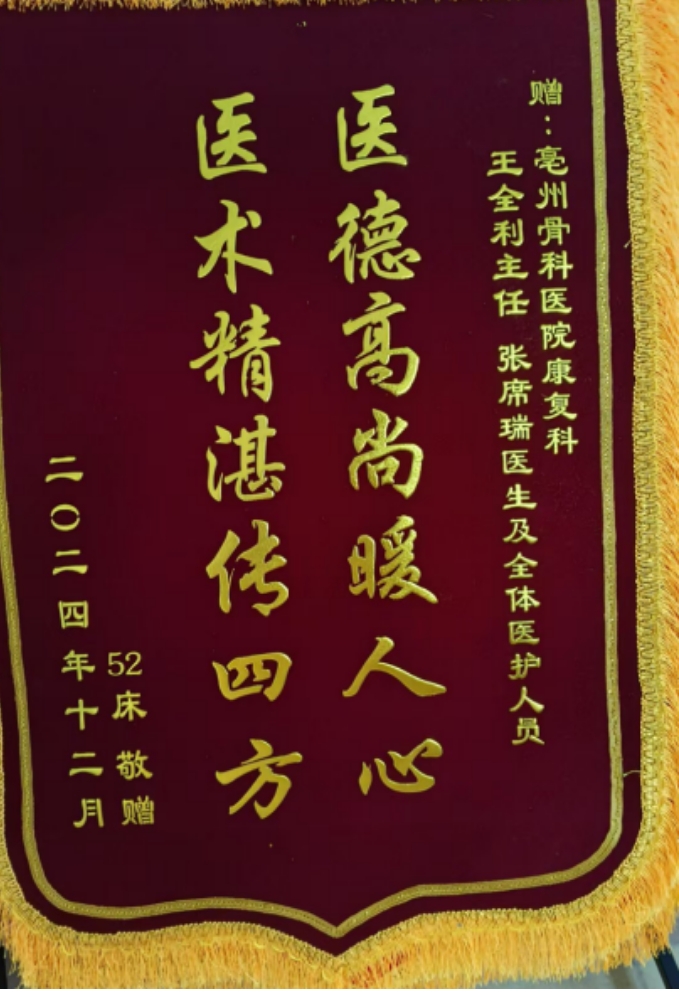 赠：亳州骨科医院康复科
王全利主任 张席瑞医生及全体医护人员
医德高尚暖人心
医术精湛传四方
52床 敬赠
二〇二四年十二月